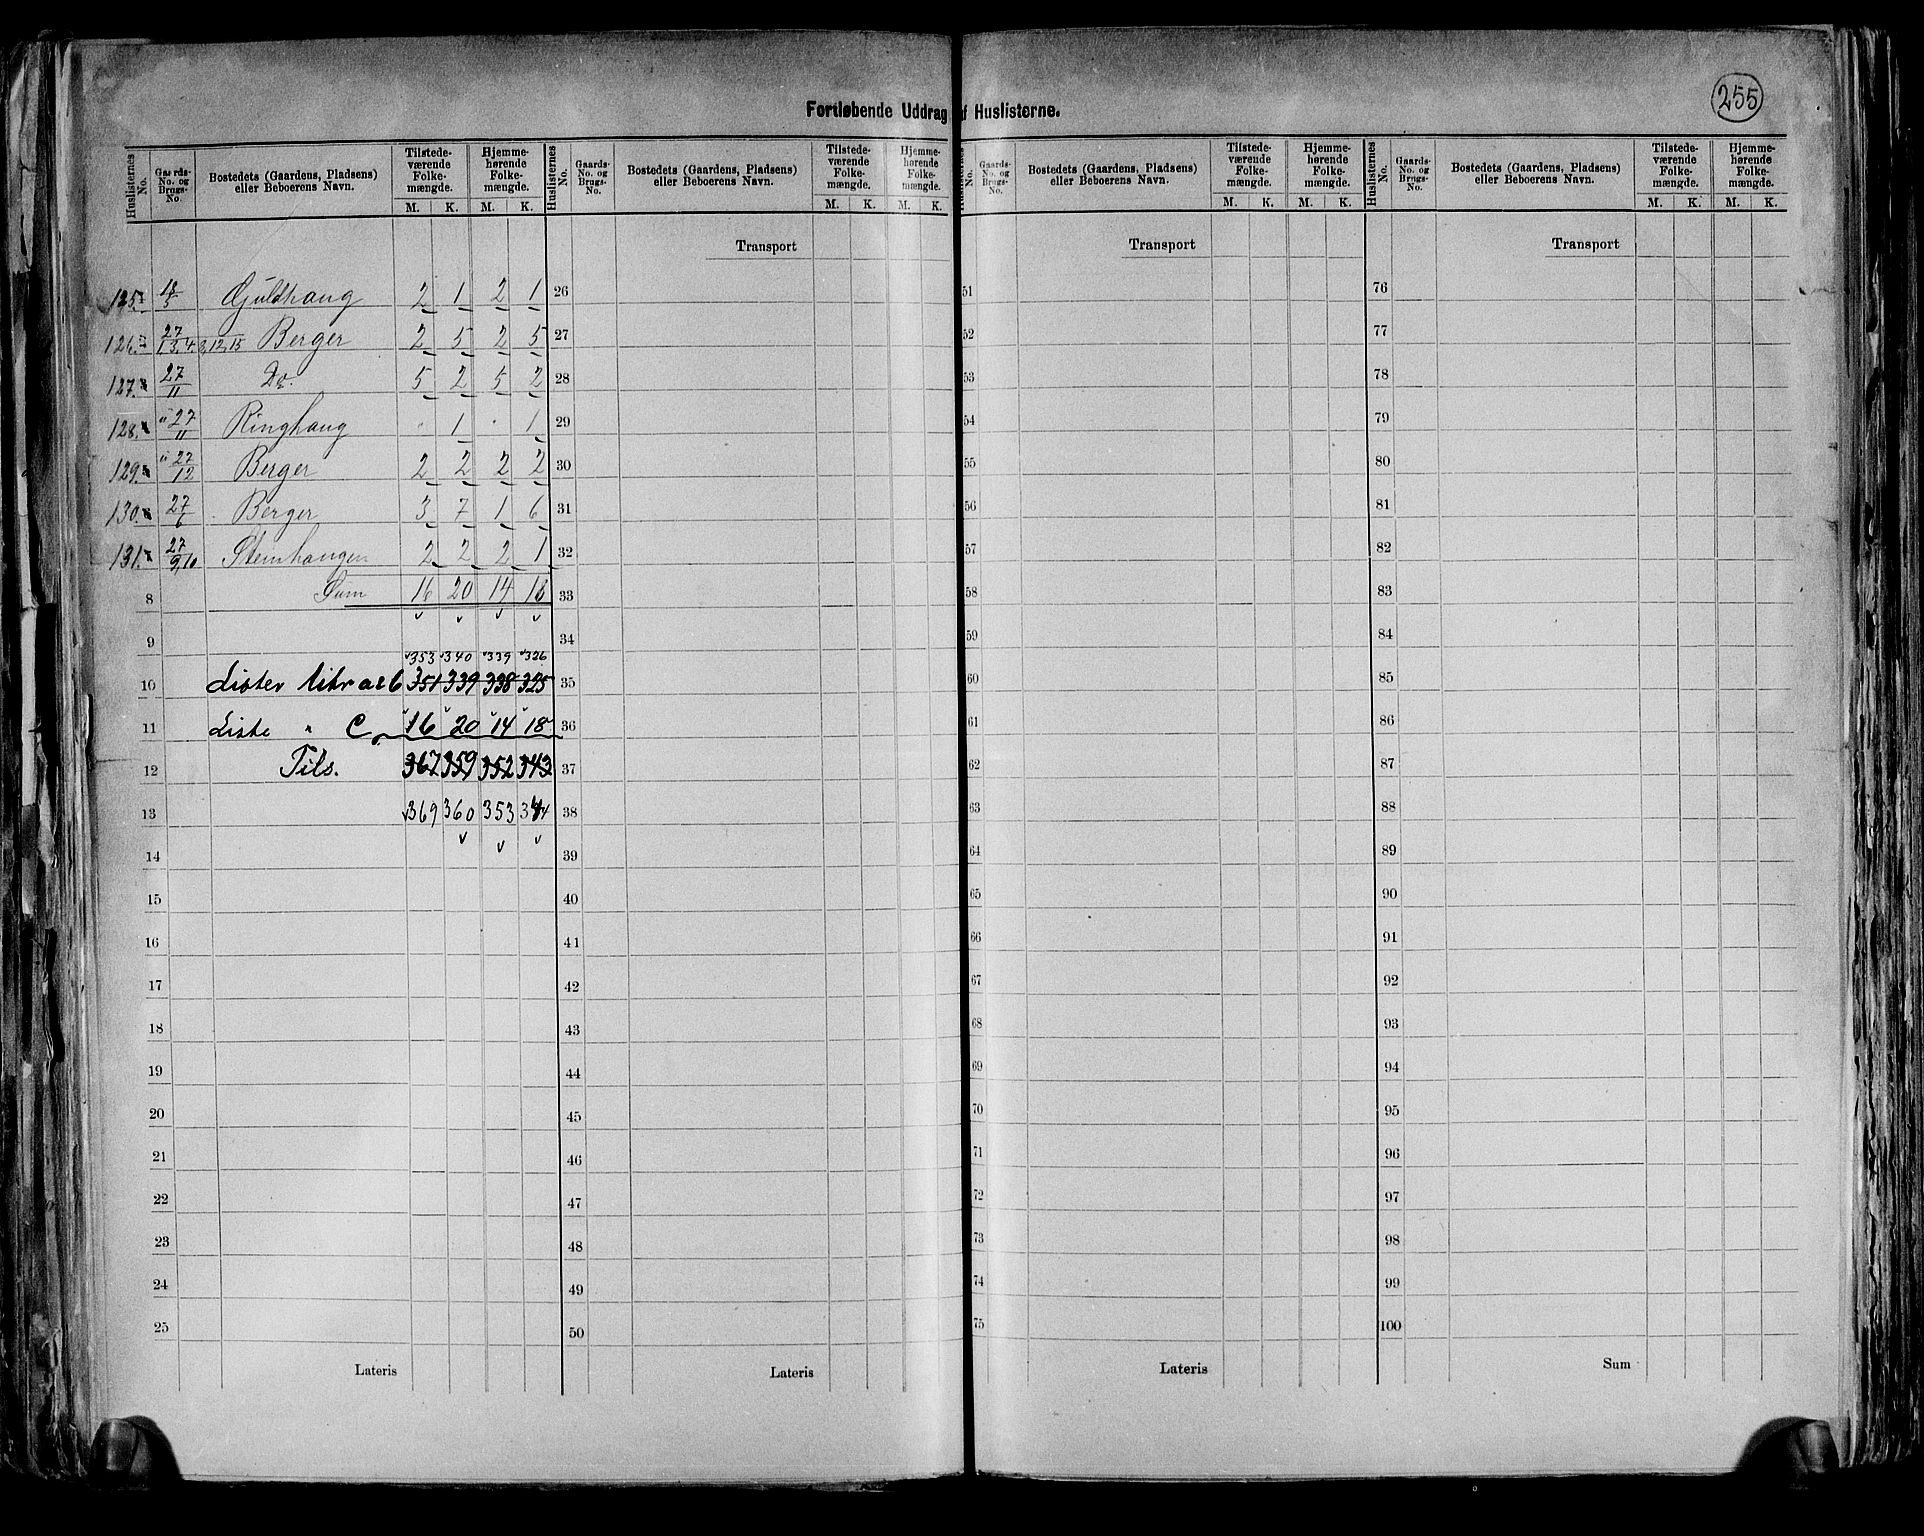 255
Fortløbende Uddrag af Huslisterne.
Huslisternes No. Gaards-No. og Brugs-No. Bostedets (Gaardens, Pladsens) eller Beboerens Navn. Tilstedeværende Folkemængde. M. K. Hjemmehørende Folkemængde. M. K.
Huslisternes No. Gaards-No. og Brugs-No. Bostedets (Gaardens, Pladsens) eller Beboerens Navn. Tilstedeværende Folkemængde. M. K. Hjemmehørende Folkemængde. M. K.
Huslisternes No. Gaards-No. og Brugs-No. Bostedets (Gaardens, Pladsens) eller Beboerens Navn. Tilstedeværende Folkemængde. M. K. Hjemmehørende Folkemængde. M. K.
Huslisternes No. Gaards-No. og Brugs-No. Bostedets (Gaardens, Pladsens) eller Beboerens Navn. Tilstedeværende Folkemængde. M. K. Hjemmehørende Folkemængde. M. K.
Transport Transport Transport
125. 18/5 Guldhaug 2 1 2 1 26 51 76
126. 27/1,3,4,8,12,15 Berger 2 5 2 5 27 52 77
127. 27/11 Do. 5 2 5 2 28 53 78
128. " 27/11 Ringhaug " 1 " 1 29 54 79
129. " 27/12 Berger 2 2 2 2 30 55 80
130. 27/6 Berger 3 7 1 6 31 56 81
131. 27/9,10 Stenhaugen 2 2 2 1 32 57 82
8 Sum 16 20 14 18 33 58 83
9 34 59 84
353 340 339 326
10 Lister litr a & b 351 339 338 325 35 60 85
11 Liste " C. 16 20 14 18 36 61 86
12 Tils. 367 359 352 343 37 62 87
13 369 360 353 344 38 63 88
14 39 64 89
15 40 65 90
16 41 66 91
17 42 67 92
18 43 68 93
19 44 69 94
20 45 70 95
21 46 71 96
22 47 72 97
23 48 73 98
24 49 74 99
25 50 75 100
Lateris Lateris Lateris Sum